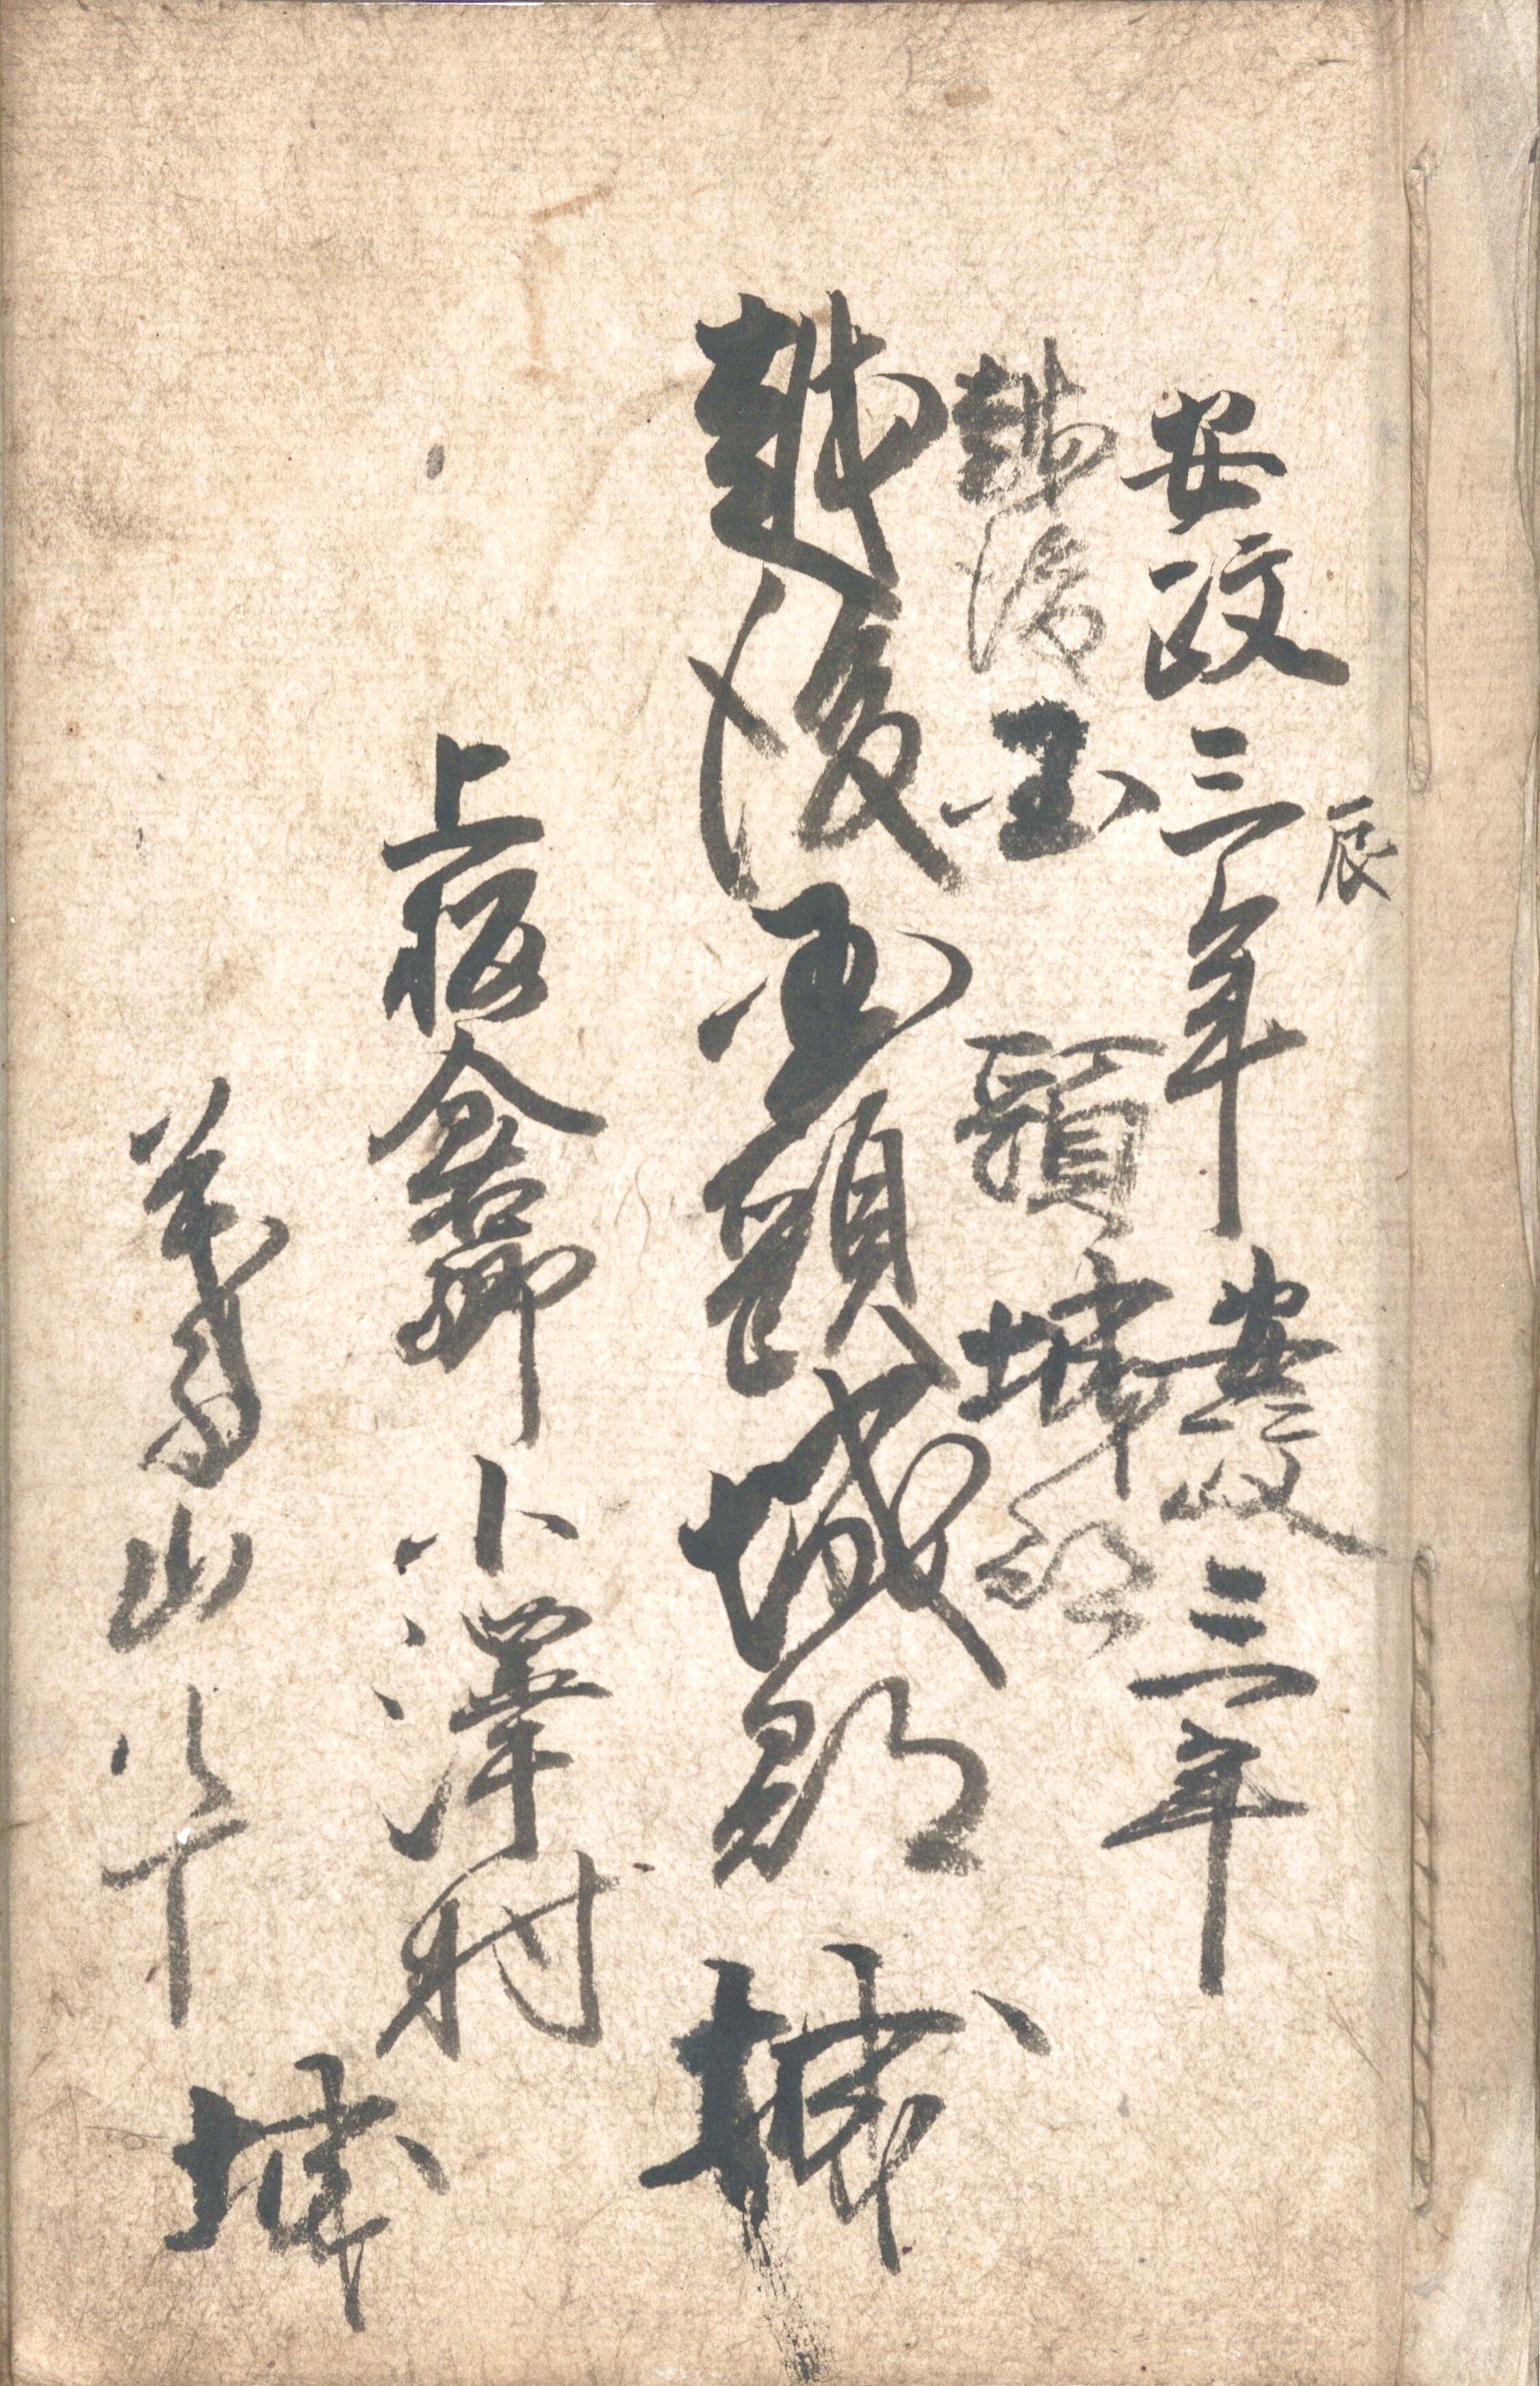 安政三年辰 安政三年
越後国 頸城郡
越後国頸城郡 城
上板倉郷 小澤村
山 城